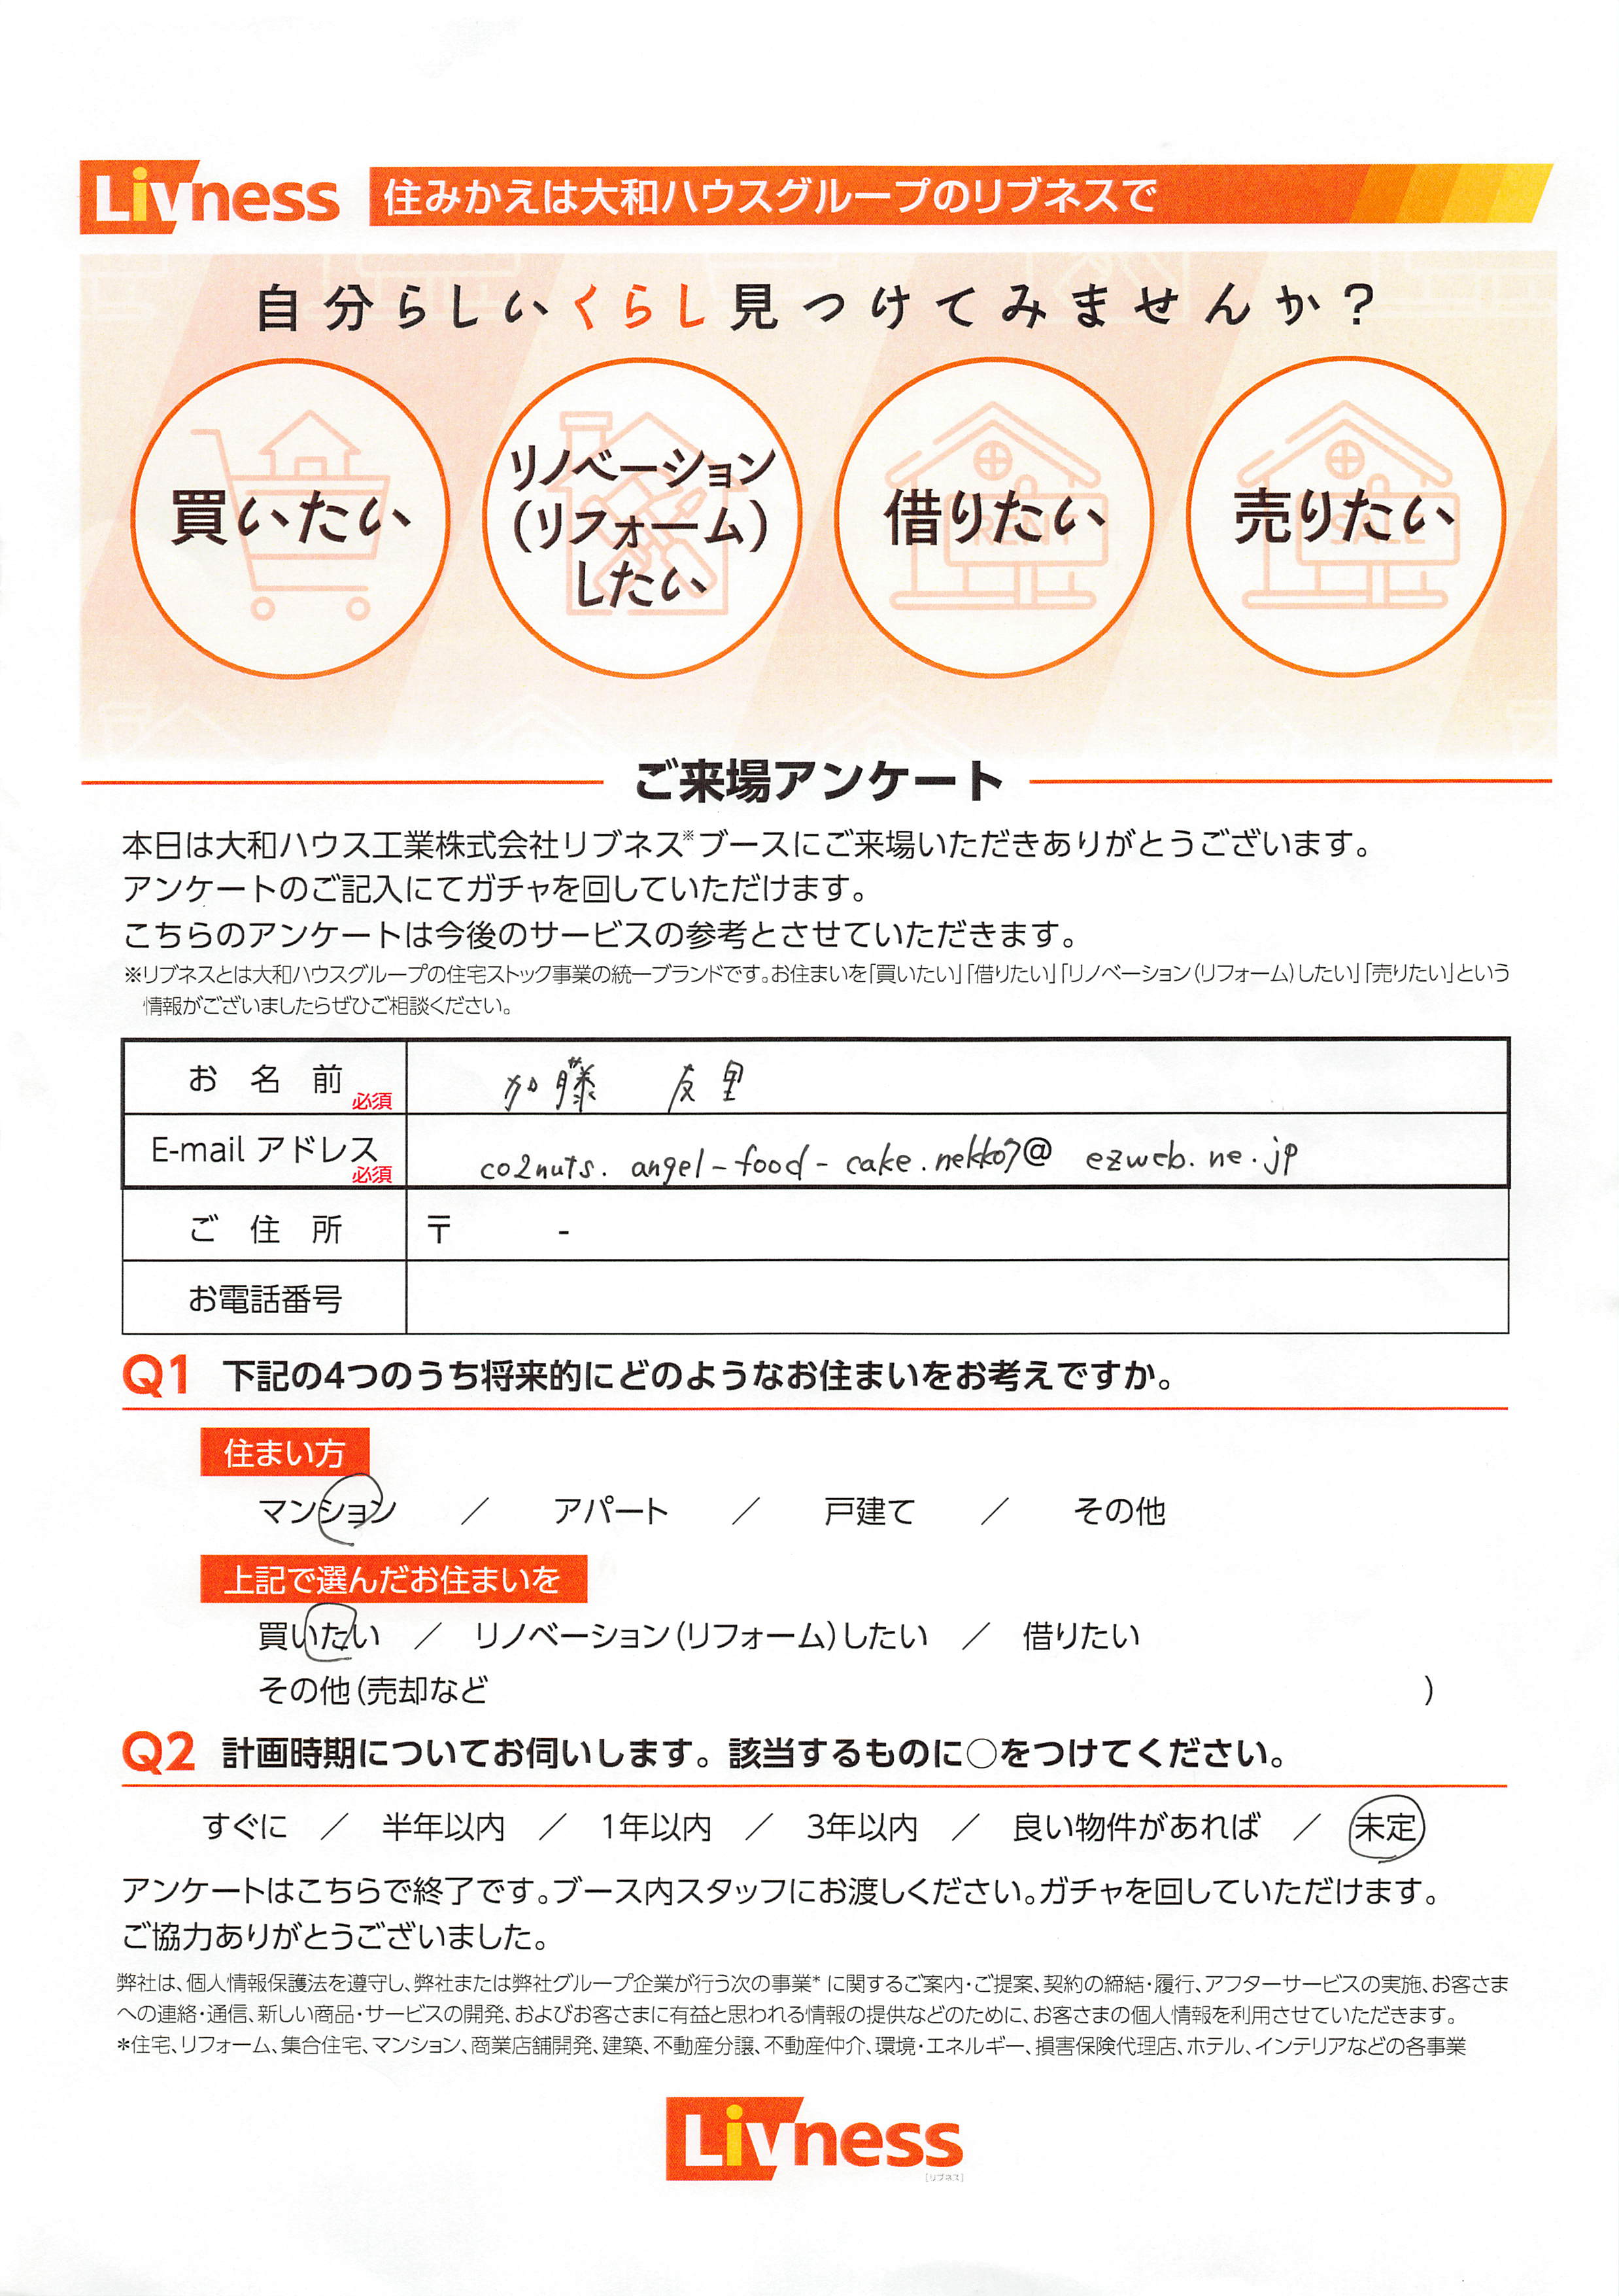 Livness 住みかえは大和ハウスグループのリブネスで
自分らしいくらし見つけてみませんか？
買いたい
リノベーション
（リフォーム）
したい
借りたい
RENT
売りたい
SALE
ご来場アンケート
本日は大和ハウス工業株式会社リブネス※ブースにご来場いただきありがとうございます。
アンケートのご記入にてガチャを回していただけます。
こちらのアンケートは今後のサービスの参考とさせていただきます。
※リブネスとは大和ハウスグループの住宅ストック事業の統一ブランドです。お住まいを「買いたい」「借りたい」「リノベーション（リフォーム）したい」「売りたい」という
情報がございましたらぜひご相談ください。
お名前 必須 加藤 友里
E-mail アドレス 必須 co2nuts.angel-food-cake.nekko7@ezweb.ne.jp
ご住所 〒 -
お電話番号
Q1 下記の4つのうち将来的にどのようなお住まいをお考えですか。
住まい方
マンション ／ アパート ／ 戸建て ／ その他
上記で選んだお住まいを
買いたい ／ リノベーション（リフォーム）したい ／ 借りたい
その他（売却など ）
Q2 計画時期についてお伺いします。該当するものに○をつけてください。
すぐに ／ 半年以内 ／ 1年以内 ／ 3年以内 ／ 良い物件があれば ／ 未定
アンケートはこちらで終了です。ブース内スタッフにお渡しください。ガチャを回していただけます。
ご協力ありがとうございました。
弊社は、個人情報保護法を遵守し、弊社または弊社グループ企業が行う次の事業* に関するご案内・ご提案、契約の締結・履行、アフターサービスの実施、お客さま
への連絡・通信、新しい商品・サービスの開発、およびお客さまに有益と思われる情報の提供などのために、お客さまの個人情報を利用させていただきます。
*住宅、リフォーム、集合住宅、マンション、商業店舗開発、建築、不動産分譲、不動産仲介、環境・エネルギー、損害保険代理店、ホテル、インテリアなどの各事業
Livness
［リブネス］